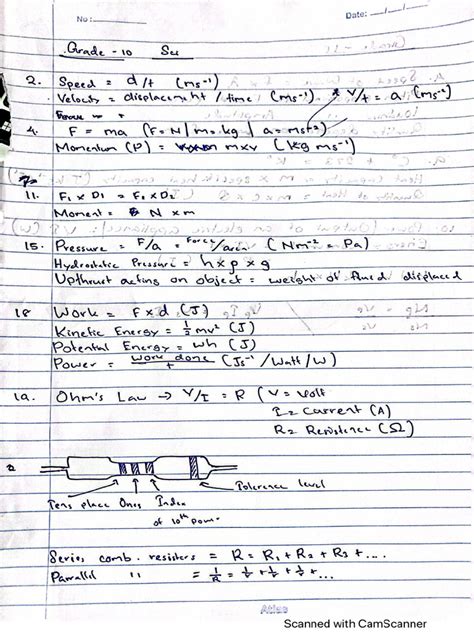 No :
Date:
Grade - 10 Sci
2. Speed = d/t (ms⁻¹)
Velocity = displacement / time (ms⁻¹) * V/t = a (ms⁻²)
4. F = ma (F = N | m = kg | a = ms⁻²)
Momentum (P) = m x v (kg ms⁻¹)
11. F₁ x D₁ = F₂ x D₂
Moment = N x m
15. Pressure = F/a = Force/area (Nm⁻² = Pa)
Hydrostatic Pressure = h x ρ x g
Upthrust acting on object = weight of fluid displaced
18 Work = F x d (J)
Kinetic Energy = ½ mv² (J)
Potential Energy = wh (J)
Power = work done / t (Js⁻¹ / Watt / W)
19. Ohm's Law → V/I = R (V = Volt
I = Current (A)
R = Resistance (Ω)
Tolerence level
Tens place Ones Index
of 10th pow.
Series comb. resisters = R = R₁ + R₂ + R₃ + ....
Parrallel " = 1/R = 1/r + 1/r + 1/r + ....
Atlas
Scanned with CamScanner